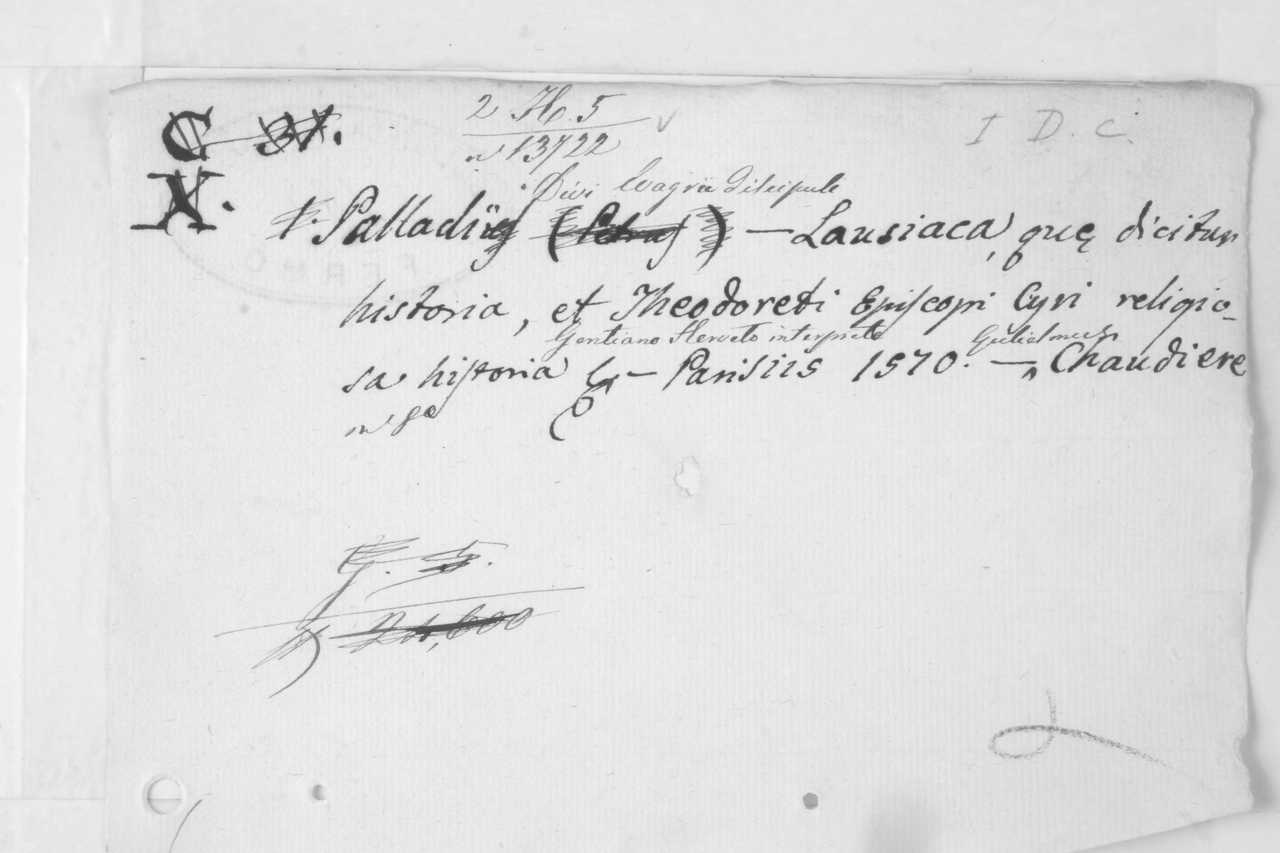 C 31.
X.
2 H. 5
n° 13722
I D. C.
Divi Evagrii discipuli
Palladii (Petrus) — Lausiaca, quę dicitur
historia, et Theodoreti Episcopi Cyri religio-
Gentiano Herveto interprete Gulielmus
sa historia — Parisiis 1570. — Chaudiere
in 8°
G. 5.
FERMO